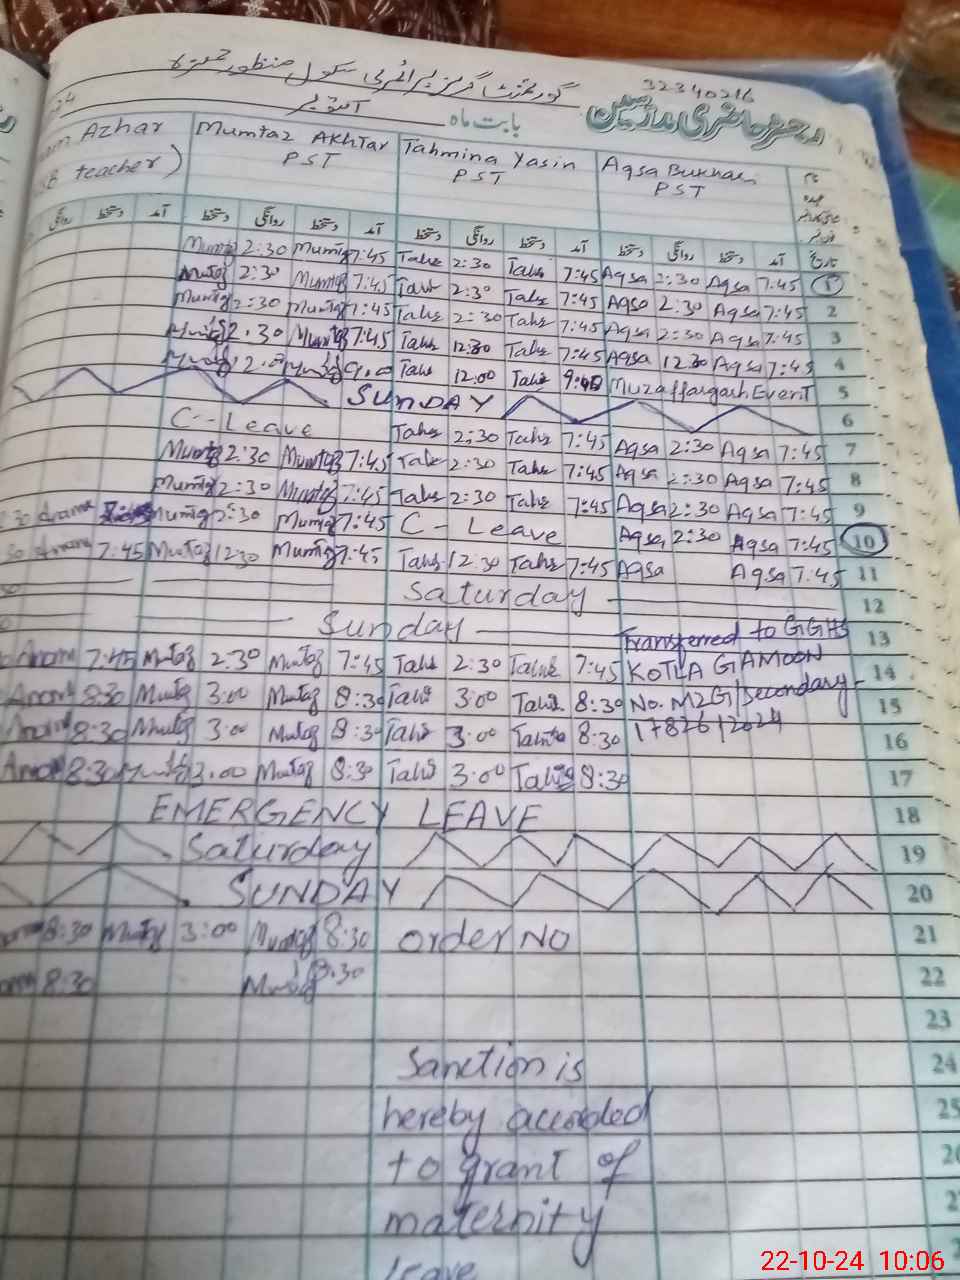 32340216
گورنمنٹ گرلز پرائمری سکول منظور
رجسٹر حاضری مدرسین بابت ماہ اکتوبر
Azhar Mumtaz AKhtar Tahmina Yasin Aqsa Bukhari
teacher) PST PST PST
روانگی دستخط آمد دستخط روانگی دستخط آمد دستخط روانگی دستخط آمد دستخط روانگی دستخط آمد تاریخ
Mumtaz 2:30 Mumtaz 7:45 Tahs 2:30 Tahs 7:45 Aqsa 2:30 Aqsa 7:45 1
Mumtaz 2:30 Mumtaz 7:45 Tahs 2:30 Tahs 7:45 Aqsa 2:30 Aqsa 7:45 2
Mumtaz 2:30 Mumtaz 7:45 Tahs 2:30 Tahs 7:45 Aqsa 2:30 Aqsa 7:45 3
Mumtaz 2.30 Mumtaz 7:45 Tahs 12:30 Tahs 7:45 Aqsa 12.30 Aqsa 7:45 4
Tahs 12.00 Tahs Muzaffargarh Event 5
SUNDAY 6
C-Leave Tahs 2:30 Tahs 7:45 Aqsa 2:30 Aqsa 7:45 7
Mumtaz 2:30 Mumtaz 7:45 Tahs 2:30 Tahs 7:45 Aqsa 2:30 Aqsa 7:45 8
Mumtaz 2:30 Mumtaz 7:45 Tahs 2:30 Tahs 7:45 Aqsa 2:30 Aqsa 7:45 9
Mumtaz 2:30 Mumtaz 7:45 C - Leave Aqsa 2:30 Aqsa 7:45 10
7:45 Mumtaz 1230 Mumtaz 7:45 Tahs 12:30 Tahs 7:45 Aqsa Aqsa 7:45 11
Saturday 12
Sunday Transferred to GGHS 13
7:45 Mumtaz 2:30 Mumtaz 7:45 Tahs 2:30 Tahs 7:45 KOTLA GAMOON 14
8:30 Mumtaz 3:00 Mumtaz 8:30 Tahs 3:00 Tahs 8:30 No. M2G/Secondary- 15
8:30 Mumtaz 3:00 Mumtaz 8:30 Tahs 3:00 Tahs 8:30 17826/2024 16
8:30 Mumtaz 3.00 Mumtaz 8:30 Tahs 3:00 Tahs 8:30 17
EMERGENCY LEAVE 18
Saturday 19
SUNDAY 20
8:30 Mumtaz 3:00 Mumtaz 8:30 Order NO 21
8:30 Mumtaz 8:30 22
23
Sanction is 24
hereby accorded 25
to grant of
maternity
leave
22-10-24 10:06